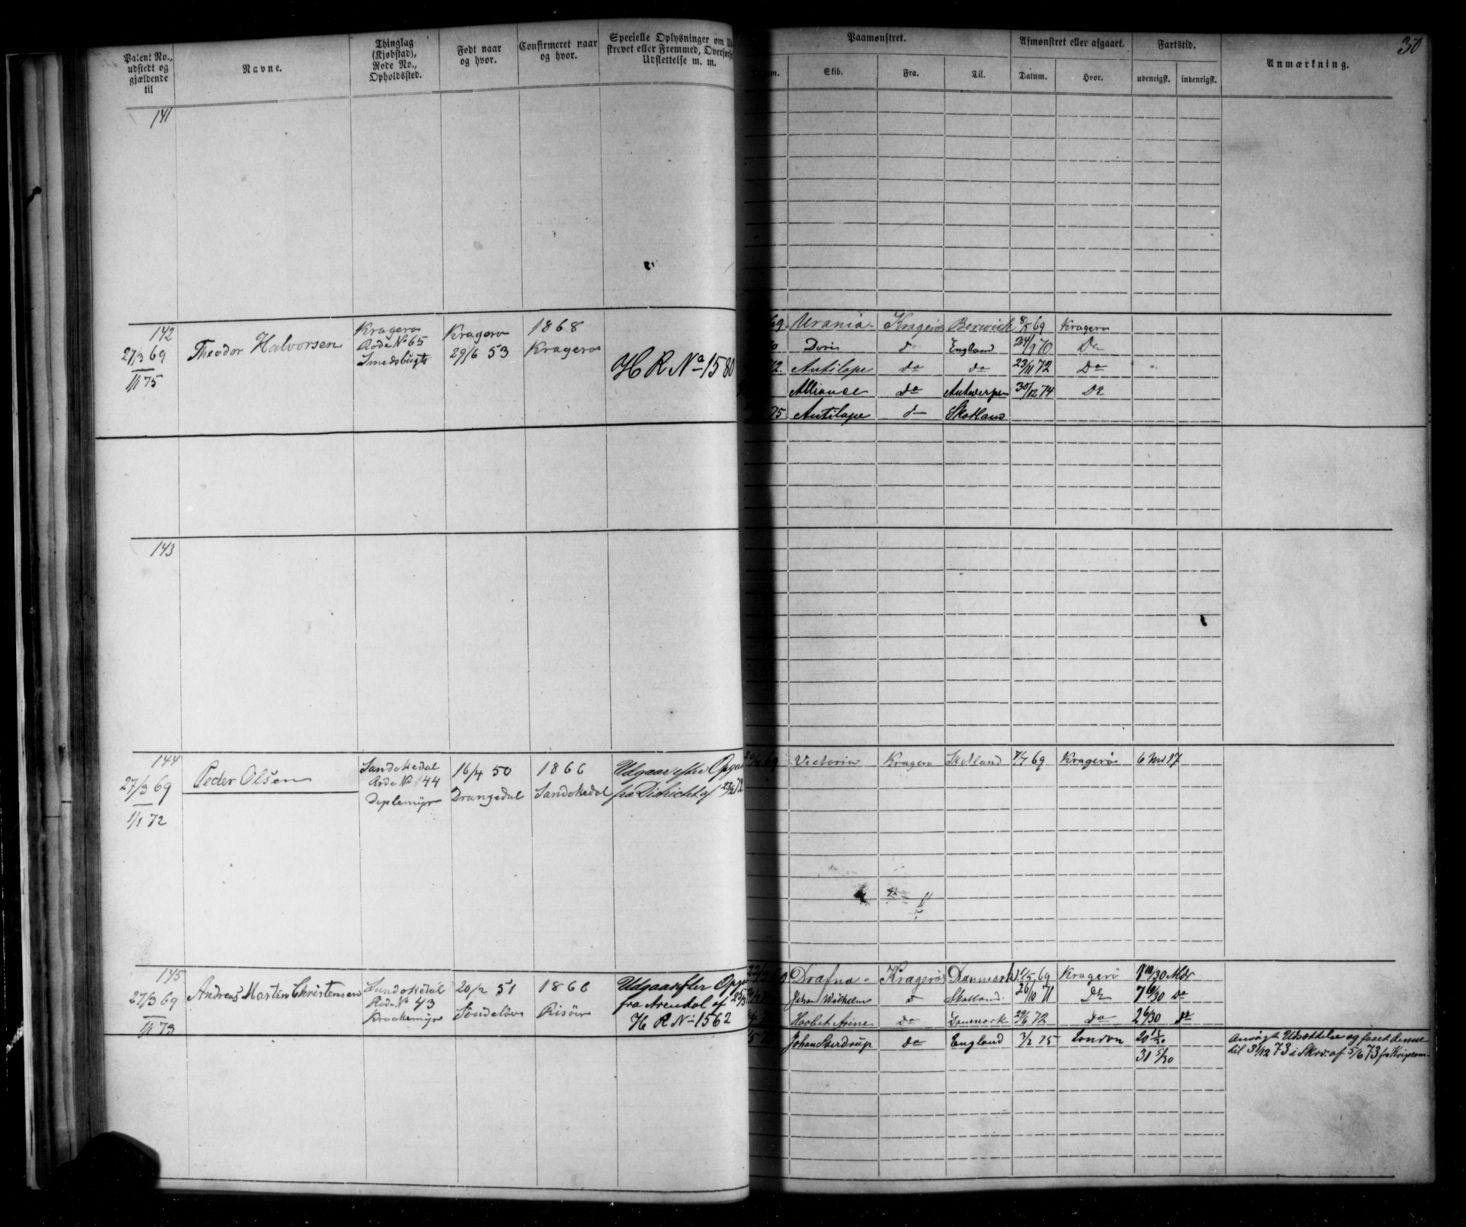 30
Patent No., udstedt og gjældende til
Navne.
Thinglag (Kjøbstad), Rode No., Opholdssted.
Født naar og hvor.
Confirmeret naar og hvor.
Specielle Oplysninger om
strevet eller Fremmed, Overfør
Udslettelse m. m.
Paamønstret.
Skib.
Fra.
Til.
Afmønstret eller afgaaet.
Datum.
Hvor.
Fartstid.
udenrigsk.
indenrigsk.
Anmærkning.
141
142
27/3 69
1/1 75
Theodor Halvorsen
Kragerø
Rode No 65
Smedsbugt
Kragerø
29/6 53
1868
Kragerø
H R No 1580
69 Urania Kragerø Berwick 8/5 69 Kragerø
Doris do England 24/9 70 Do
72 Antilope do do 23/11 72 Do
Alliance do Antwerpen 30/12 74 Do
75 Antilope do Skotland
143
144
27/3 69
1/1 72
Peder Olsen
Sandøkedal
Rode No 144
Duplemyr
16/4 50
Drangedal
1866
Sandøkedal
Udgaar efter Opgav
fra Distriktet af
Victoria Kragerø Skotland 7/7 69 Kragerø 6 Md 17
145
27/3 69
1/1 73
Andreas Martin Christensen
Sandøkedal
Rode No 43
Braakemyr
20/2 51
Søndeløv
1866
Risøør
Udgaar efter Opg
fra Arendal af
H R No 1562
22/3 69 Drafna Kragerø Danmark 12/5 69 Kragerø
Johan Wilhelm do Skotland 26/10 71 Do
Haabet Arine do Danmark 29/6 72 do
Johan Sverdrup do England 3/2 75 London
Ansøgt Udsættelse og faaet denne
til 31/12 73 i Skriv. af 5/6 73